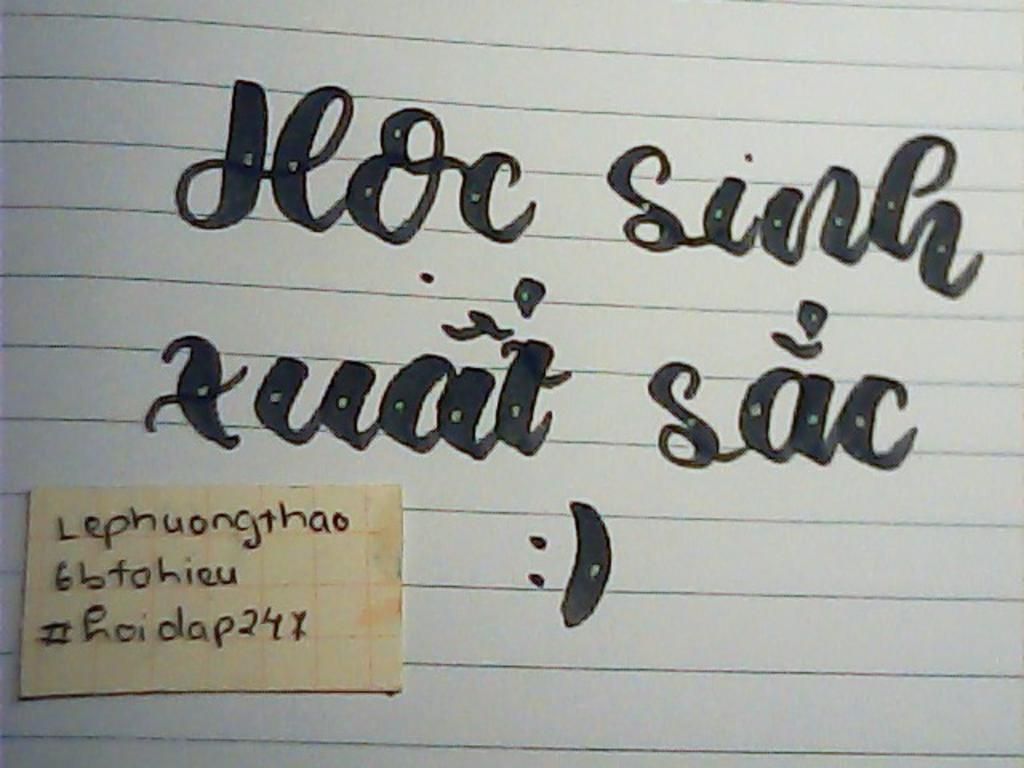 Học sinh
xuất sắc
:)
Lephuongthao
6btohieu
#hoidap247